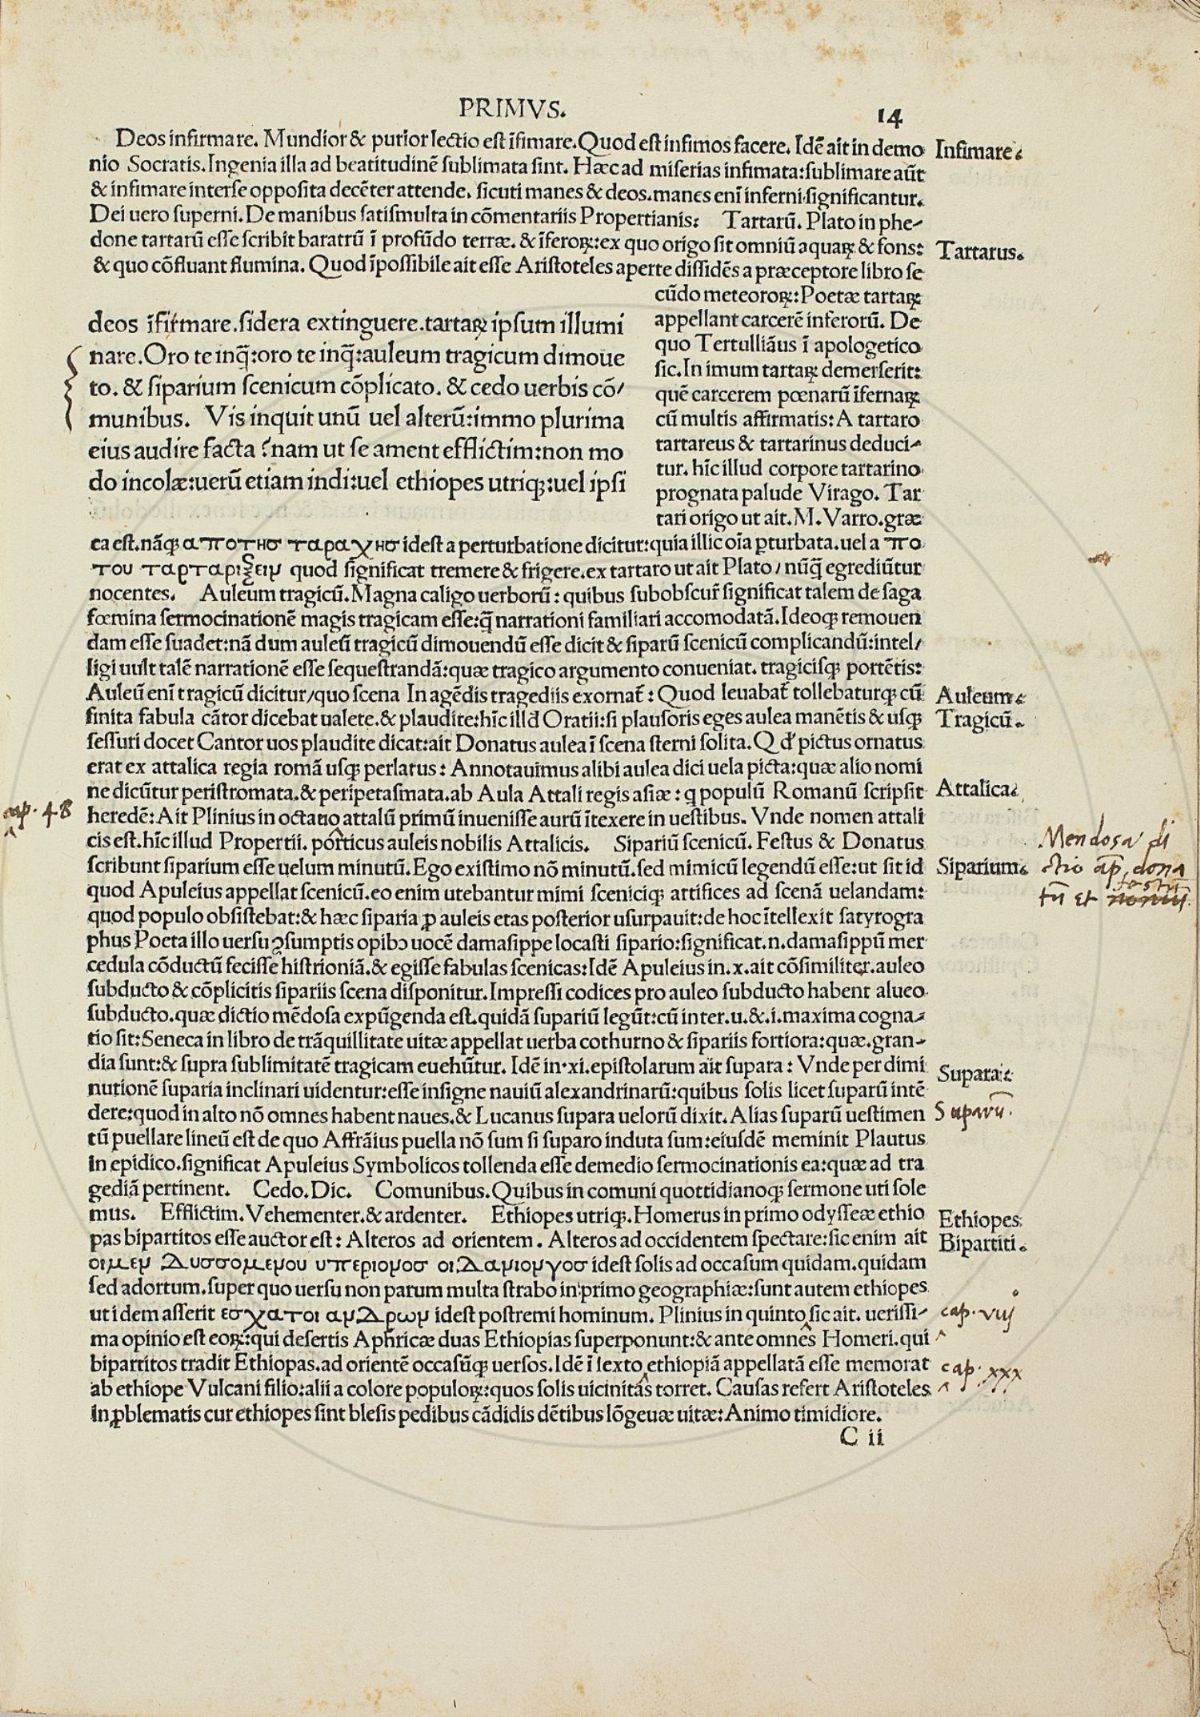 PRIMVS.
14
Deos infirmare. Mundior & purior lectio est ĩfimare. Quod est infimos facere. Idẽ ait in demo
Infimare.
nio Socratis. Ingenia illa ad beatitudinẽ sublimata sint. Hæc ad miserias infimata: sublimare aũt
& infimare inter se opposita decẽter attende. sicuti manes & deos. manes enĩ inferni significantur.
Dei uero superni. De manibus satis multa in cõmentariis Propertianis: Tartarũ. Plato in phe-
done tartarũ esse scribit baratrũ ĩ profũdo terræ. & ĩferoꝝ: ex quo origo sit omniũ aquaꝝ & fons:
Tartarus.
& quo cõfluant flumina. Quod ĩpossibile ait esse Aristoteles aperte dissidẽs a præceptore libro se
cũdo meteoroꝝ: Poetæ tartaꝝ
appellant carcerẽ inferorũ. De
quo Tertulliãus ĩ apologetico
sic. In imum tartaꝝ demerserit:
quẽ carcerem pœnarũ ĩfernaꝝ
cũ multis affirmatis: A tartaro
tartareus & tartarinus deduci-
tur. hĩc illud corpore tartarino
prognata palude Virago. Tar
tari origo ut ait. M. Varro. græ
deos ĩfirmare. sidera extinguere. tartaꝝ ipsum illumi
nare. Oro te inq̃: oro te inq̃: auleum tragicum dimoue
to. & siparium scenicum cõplicato. & cedo uerbis cõ/
munibus. Vis inquit unũ uel alterũ: immo plurima
eius audire facta? nam ut se ament efflictim: non mo
do incolæ: uerũ etiam indi: uel ethiopes utriq;: uel ipsi
ca est. nãq; αποτησ ταραχησ idest a perturbatione dicitur: quia illic oĩa ꝑturbata. uel a πο
του ταρταριξειμ quod significat tremere & frigere. ex tartaro ut ait Plato / nũq̃ egrediũtur
nocentes. Auleum tragicũ. Magna caligo uerborũ: quibus subobscur̃ significat talem de saga
fœmina sermocinationẽ magis tragicam esse: q̃ narrationi familiari accomodatã. Ideoq; remouen
dam esse suadet: nã dum auleũ tragicũ dimouendũ esse dicit & siparũ scenicũ complicandũ: intel/
ligi uult talẽ narrationẽ esse sequestrandã: quæ tragico argumento conueniat. tragicisq; portẽtis:
Auleũ enĩ tragicũ dicitur / quo scena In agẽdis tragediis exornat̃: Quod leuabat̃ tollebaturq; cũ
Auleum.
finita fabula cãtor dicebat ualete. & plaudite: hĩc illd Oratii: si plausoris eges aulea manẽtis & usq;
Tragicũ.
sessuri docet Cantor uos plaudite dicat: ait Donatus aulea ĩ scena sterni solita. Q d̃ pictus ornatus
erat ex attalica regia romã usq; perlatus: Annotauimus alibi aulea dici uela picta: quæ alio nomi
ne dicũtur peristromata. & peripetasmata. ab Aula Attali regis asiæ: q populũ Romanũ scripsit
Attalica.
cap. 48
heredẽ: Ait Plinius in octauo attalũ primũ inuenisse aurũ ĩtexere in uestibus. Vnde nomen attali
cis est. hĩc illud Propertii. porticus auleis nobilis Attalicis. Sipariũ scenicũ. Festus & Donatus
scribunt siparium esse uelum minutũ. Ego existimo nõ minutũ. sed mimicũ legendũ esse: ut sit id
Siparium.
Mendosa di
ctio ap. dona
tũ et
festũ
quod Apuleius appellat scenicũ. eo enim utebantur mimi sceniciq; artifices ad scenã uelandam:
quod populo obsistebat: & hæc siparia ꝓ auleis etas posterior usurpauit: de hoc ĩtellexit satyrogra
phus Poeta illo uersu ꝯsumptis opibꝰ uocẽ damasippe locasti sipario: significat. n. damasippũ mer
cedula cõductũ fecisse histrioniã. & egisse fabulas scenicas: Idẽ Apuleius in. x. ait cõsimiliter. auleo
subducto & cõplicitis sipariis scena disponitur. Impressi codices pro auleo subducto habent alueo
subducto. quæ dictio mẽdosa expũgenda est. quidã supariũ legũt: cũ inter. u. & . i. maxima cogna-
tio sit: Seneca in libro de trãquillitate uitæ appellat uerba cothurno & sipariis fortiora: quæ. gran-
dia sunt: & supra sublimitatẽ tragicam euehũtur. Idẽ in. xi. epistolarum ait supara: Vnde per dimi
Supara:
nutionẽ suparia inclinari uidentur: esse insigne nauiũ alexandrinarũ: quibus solis licet suparũ intẽ
dere: quod in alto nõ omnes habent naues. & Lucanus supara uelorũ dixit. Alias suparũ uestimen
Suparũ.
tũ puellare lineũ est de quo Affrãius puella nõ sum si suparo induta sum: eiusdẽ meminit Plautus
in epidico. significat Apuleius Symbolicos tollenda esse demedio sermocinationis ea: quæ ad tra
gediã pertinent. Cedo. Dic. Comunibus. Quibus in comuni quottidianoq; sermone uti sole
mus. Efflictim. Vehementer. & ardenter. Ethiopes utriq;. Homerus in primo odysseæ ethio
Ethiopes
pas bipartitos esse auctor est: Alteros ad orientem. Alteros ad occidentem spectare: sic enim ait
Bipartiti.
οιμεμ Δυσσομεμου υπεριομοσ οιΔαμιομγοσ idest solis ad occasum quidam. quidam
sed adortum. super quo uersu non parum multa strabo in primo geographiæ: sunt autem ethiopes
ut idem asserit εσχατοι αμΔρωμ idest postremi hominum. Plinius in quinto sic ait. uerissi-
cap. viiº
ma opinio est eoꝝ: qui desertis Aphricæ duas Ethiopias superponunt: & ante omnes Homeri. qui
bipartitos tradit Ethiopas. ad orientẽ occasũq; uersos. Idẽ ĩ sexto ethiopiã appellatã esse memorat
cap. xxx
ab ethiope Vulcani filio: alii a colore populoꝝ: quos solis uicinitas torret. Causas refert Aristoteles
in ꝓblematis cur ethiopes sint blesis pedibus cãdidis dẽtibus lõgeuæ uitæ: Animo timidiore.
C ii